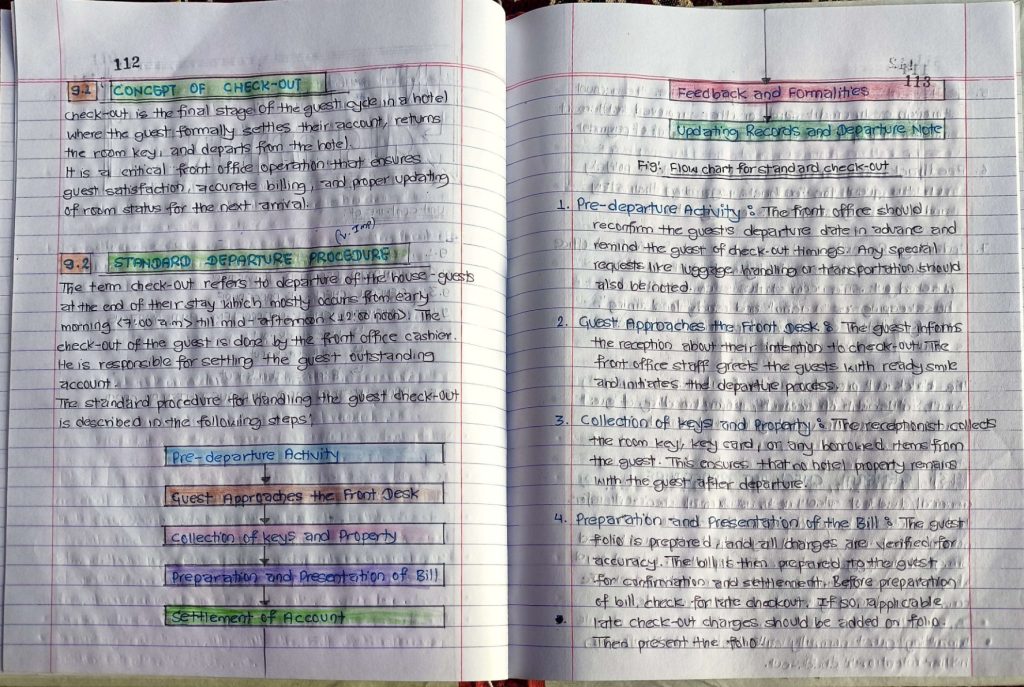 112
9.1 CONCEPT OF CHECK-OUT
check-out is the final stage of the guest cycle in a hotel
where the guest formally settles their account, returns
the room key, and departs from the hotel.
It is a critical front office operation that ensures
guest satisfaction, accurate billing, and proper updating
of room status for the next arrival.
(V. Imp)
9.2 STANDARD DEPARTURE PROCEDURE
The term check-out refers to departure of the house-guests
at the end of their stay which mostly occurs from early
morning (7:00 a.m) till mid-afternoon (12:00 noon). The
check-out of the guest is done by the front office cashier.
He is responsible for settling the guest outstanding
account.
The standard procedure for handling the guest check-out
is described in the following steps;
Pre-departure Activity
Guest Approaches the Front Desk
Collection of Keys and Property
Preparation and Presentation of Bill
Settlement of Account
113
Feedback and Formalities
Updating Records and Departure Note
Fig: Flow chart for standard check-out
1. Pre-departure Activity: The front office should
reconfirm the guests departure date in advance and
remind the guest of check-out timings. Any special
requests like luggage handling or transportation should
also be noted.
2. Guest Approaches the Front Desk: The guest informs
the reception about their intention to check-out. The
front office staff greets the guests with ready smile
and initiates the departure process.
3. Collection of keys and Property: The receptionist collects
the room key, key card, or any borrowed items from
the guest. This ensures that no hotel property remains
with the guest after departure.
4. Preparation and Presentation of the Bill: The guest
folio is prepared, and all charges are verified for
accuracy. The bill is then prepared to the guest
for confirmation and settlement. Before preparation
of bill, check for late checkout. If so, applicable
late check-out charges should be added on folio.
Then present the folio.